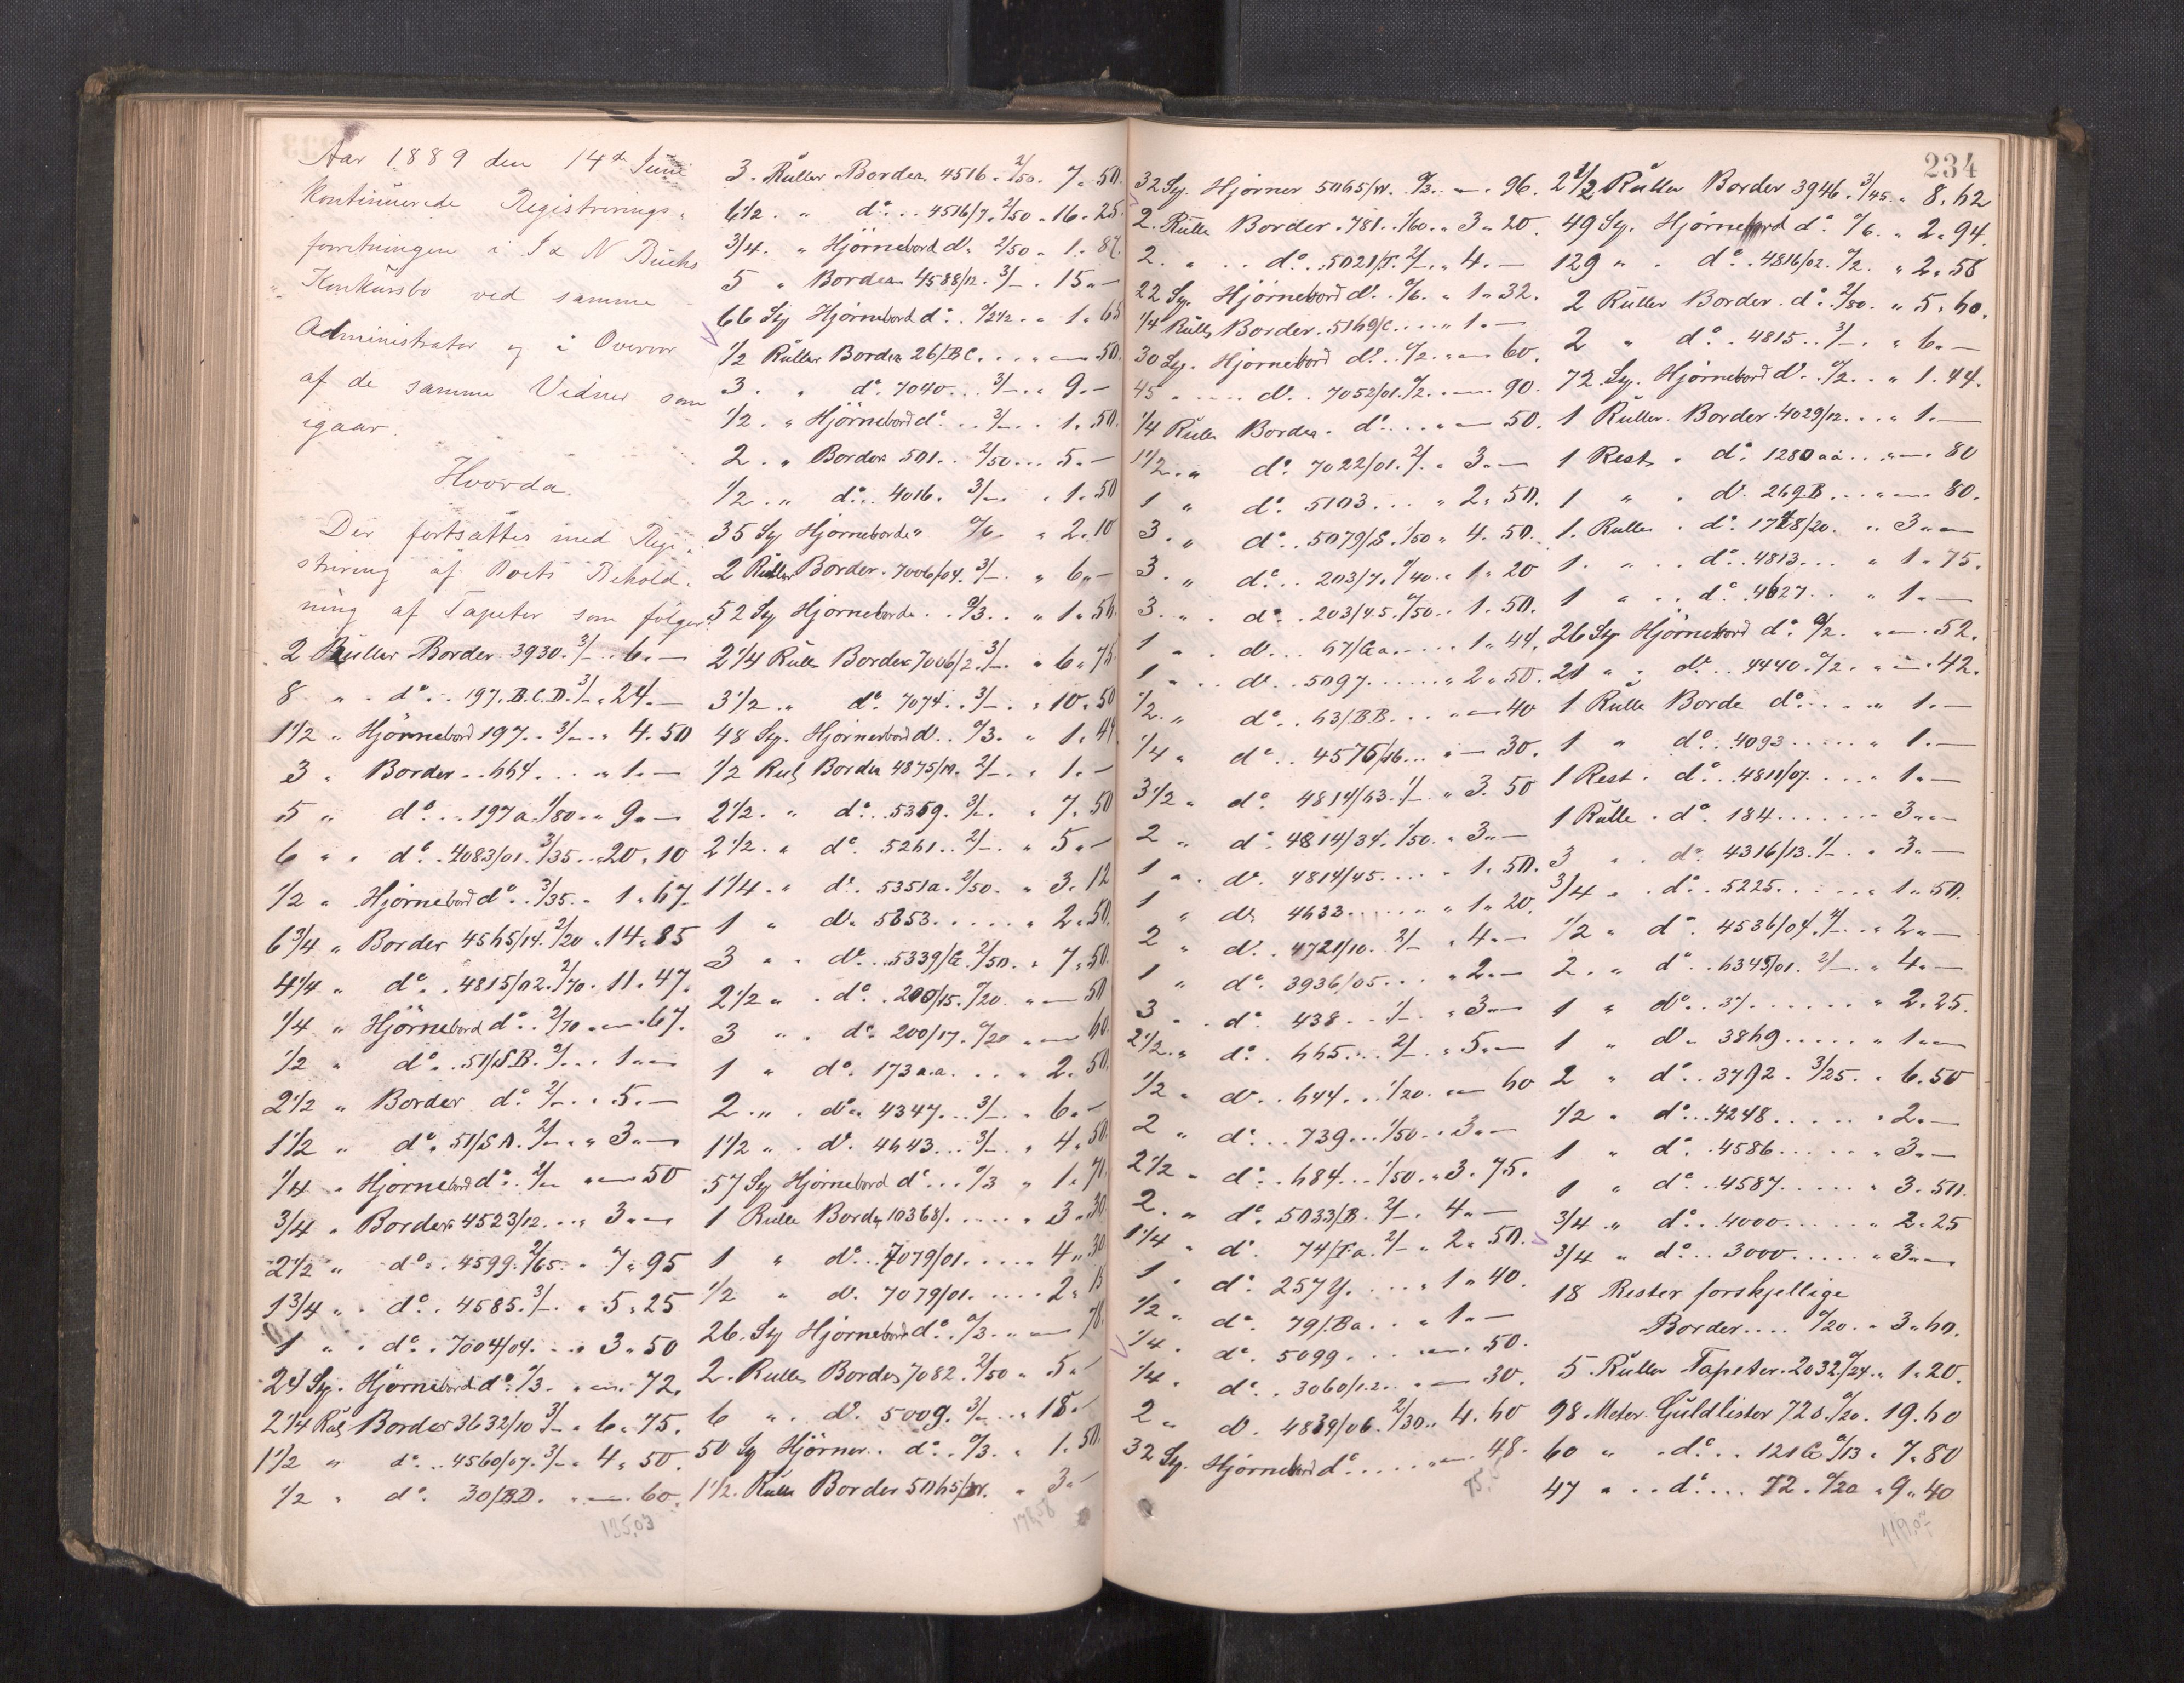 Aar 1889 den 14de Juni
kontinuerede Registrerings-
forretningen i I & N Buchs
Konkursbo ved samme
Administrator og i Overvær
af de samme Vidner som
igaar.
Hvorda.
Der fortsattes med Regi-
strering af Boets Behold-
ning af Tapeter som følger:
2 Ruller Border 3930. 3/- . 6. -
8 " . do . 197. B.C.D. 3/- . 24. -
1 1/2 " Hjørnebord 197 . 3/- . 4. 50
3 " Border . 664 . . . " 1. -
5 " do . . 197a. 1/80 . " 9. -
6 " . do . 4083/01. 3/35 . . 20. 10
1/2 " Hjørnebord do . 3/35 . 1. 67
6 3/4 " Border 4565/14. 2/20 . 14. 85
4 1/4 " do . . 4815/02. 2/70 . 11. 47.
1/4 " Hjørnebord do . 2/70 . - . 67.
1/2 " do . . 51/S.B. 2/- . . 1. -
2 1/2 " Border do . 2/- . . 5. -
1 1/2 " do . 51/S A. 2/- . " 3. -
1/4 " Hjørnebord do . 2/- . - 50
3/4 " Border 4523/12. . . " 3. -
2 1/2 " do . . 4599. 2/65 . . 7. 95
1 3/4 " . do . 4585. 3/- . . 5. 25
1 " . do . . 7004/04. . . 3. 50
24 Sty. Hjørnebord do . 0/3. . - . 72.
2 1/4 Rul. Border 3632/10 3/- . 6. 75.
1 1/2 " do . . 4560/07. 3/- . 4. 50.
1/2 " do . 30/B.D. . - . 60.
135,03
3. Ruller Border 4516. 2/50. 7. 50.
6 1/2. . " do . . 4516/7. 2/50 . 16. 25.
3/4. " Hjørnebord do . 2/50 . 1. 87.
5 " Border 4588/12. 3/- . 15. -
66 Sty Hjørnebord do . . 0/2 1/2. . 1. 65
1/2 Ruller Border 26/BC. . . . - 50.
3. . " do . 7040. . . 3/- . 9. -
1/2. . " Hjørnebord do . . 3/- . . 1. 50.
2. . " Border 501. . 2/50 . . 5. -
1/2. . " do . . 4016. 3/- . . 1. 50
35 Sty Hjørneborde " 0/6 . 2. 10
2 Ruller Border. 7006/04. 3/- . " 6. -
52 Sty Hjørneborde . . 0/3. . " 1. 56.
2 1/4 Rulle Border 7006/2. 3/- . " 6. 75.
3 1/2. " do . 7074. . 3/- . . 10. 50
48 Sty. Hjørnerbord do . . 0/3. " 1. 44
1/2 Rul. Border 4875/10. 2/- . . 1. -
2 1/2. . " do . . 5359. 3/- . . 7. 50
2 1/2. . " do . 5261. . 2/- . . 5. -
1 1/4. . " do . . 5351a. 2/50. . 3. 12
1 " do . 5353. . . . . 2. 50.
3 " . do . . 5339/C. 2/50. . 7. 50.
2 1/2 " . do . . 200/15. 0/20 . - 50
3 " . do . 200/17. 0/20 . - 60.
1 " do . 173 a.a. . . . 2. 50.
2. . " . do . . 4347. . . 3/- . . 6. -
1 1/2 " . do . 4643. . . 3/- . . 4. 50.
57 Sty Hjørnebord do . . . 0/3 " 1. 71.
1 Rulle Border 10368/. . . . . 3. 30.
1 " do . . 7079/01. . . . . 4. 30
1/2 " do . 7079/01. . . . . 2. 15
26. Sty Hjørnebord do . . 0/3. . - 78.
2. Ruller Border 7082. 2/50 . 5. -
6 " . do . 5009. 3/- . . 18. -
50 Sty Hjørner . . do . . 0/3. . 1. 50.
1 1/2. Rulle Border 5065/W. . 3. -
234
32 Sty. Hjørner 5065/W. 0/3. . - . 96.
2. Rulle Border . 781. . 1/60. . 3. 20.
2. . " . . do . . 5021/T. 2/- . . 4. -
22 Sty. Hjørnebord do . . 0/6. . 1. 32.
1/4 Rulle Border . 5169/c. . . . " 1. -
30 Sty. Hjørnebord do . . 0/2. . - 60.
45 . . . . . do . . 7052/01. 0/2. . - . 90.
1/4 Rulle Border . do . . . . . - 50.
1 1/2. . " do . 7022/01. 2/- . . 3. -
1 " do . 5103. . . . 2. 50.
3. " do . . 5079/S. 1/50 . 4. 50.
3. " do . . 203/7. 0/40. . 1. 20
3. . " . do . . 203/45. 0/50. . 1. 50.
1 " . do . . . 67/Ca . . . . . 1. 44.
1 " . . do . . 5097. . . . . . 2. 50.
1/2. " do . . 63/B.B. . . . - 40
1/4 " do . . 4576/16. . . . - 30.
3 1/2 " do . 4814/63. 1/- . . 3. 50
2 " do . 4814/34. 1/50. . 3. -
1 " . do . 4814/45. . . . . 1. 50.
1 " do . 4633. . . . . . 1. 20.
2 " do . . 4721/10. 2/- . 4. -
1 " do . 3936/05. . . . 2. -
3 " . do . 438. . . 1/- . . 3. -
2 1/2. . " do . . 665. . . 2/- . . 5. -
1/2 " do . . 644. . . 1/20. . - 60
2 " do . . . 739. . . 1/50 . . 3. -
2 1/2 " do . . 684. . . 1/50. . 3. 75.
2. . " do . 5033/B. 2/- . 4. -
1 1/4 " do . 74/Fa. 2/- . 2. 50.
1. do . 257y. . . . . 1. 40.
1/2 " do . . 79/Ba. . . 1. -
1/4. do . . 5099. . . . - . 50.
1/4. do . . 3060/12. . . - 30.
2 " do . 4839/06. 2/30. . 4. 60
32 Sty. Hjørnebord do . . . . . - . 48.
2 1/2 Ruller Border 3946. 3/45. . 8. 62
49 Sty. Hjørnebord do . 0/6. . 2. 94.
129 " . do . . 4816/02. 0/2. . 2. 58
2 Ruller Border . do . 2/80. . 5. 60.
2 " do . . 4815. . 3/- . . 6. -
72. Sty. Hjørnebord do . . 0/2. . . 1. 44.
1 Ruller . Border . 4029/12. . . . 1. -
1 Rest. . do . 1280aa . . . - . 80
1 " . do . 269B . . . - . 80.
1. Ruller . do . 1748/20. . . 3. -
1. . " . . do . . 4813. . . . 1. 75.
1 " . . do . . 4627. . . . 1. -
26 Sty. Hjørnebord do . 0/2. . - . 52.
21 " . do . . 4440. 0/2. . - . 42.
1 Rulle Borde do . . . . . 1. -
1 " do . . 4093 . . . . . 1. -
1 Rest . do . . 4811/07. . . . . 1. -
1 Rulle . do . 184. . . . . . . 3. -
3 " . do . 4316/13. 1/- . . 3. -
3/4 " . do . . 5225. . . . . . 1. 50.
1/2 " do . 4536/04. 4/- . . 2. -
2. . " do . . 6345/01. 2/- . . 4. -
1 " do . . 37. . . . . . . 2. 25.
1 " do . 3869. . . . . . 1. -
2 " do . . 3792. 3/25. . 6. 50
1/2 " do . . 4248. . . . . . 2. -
1 " do . . 4586. . . . . . 3. -
1 " do . . 4587. . . . . . 3. 50.
3/4 " do . . 4000. . . . . . 2. 25
3/4 " do . . 3000. . . . . . 3. -
18 Rester forskjellige
Border . . . . 0/20. . 3. 60.
5 Ruller Tapeter. 2032. 0/24. . 1. 20.
98 Meter Guldlister 728. 0/20. 19. 60
60 " . do . . 121C 0/13 . 7. 80
47 " . . do . . . . 72. 0/20 . 9. 40
119,07